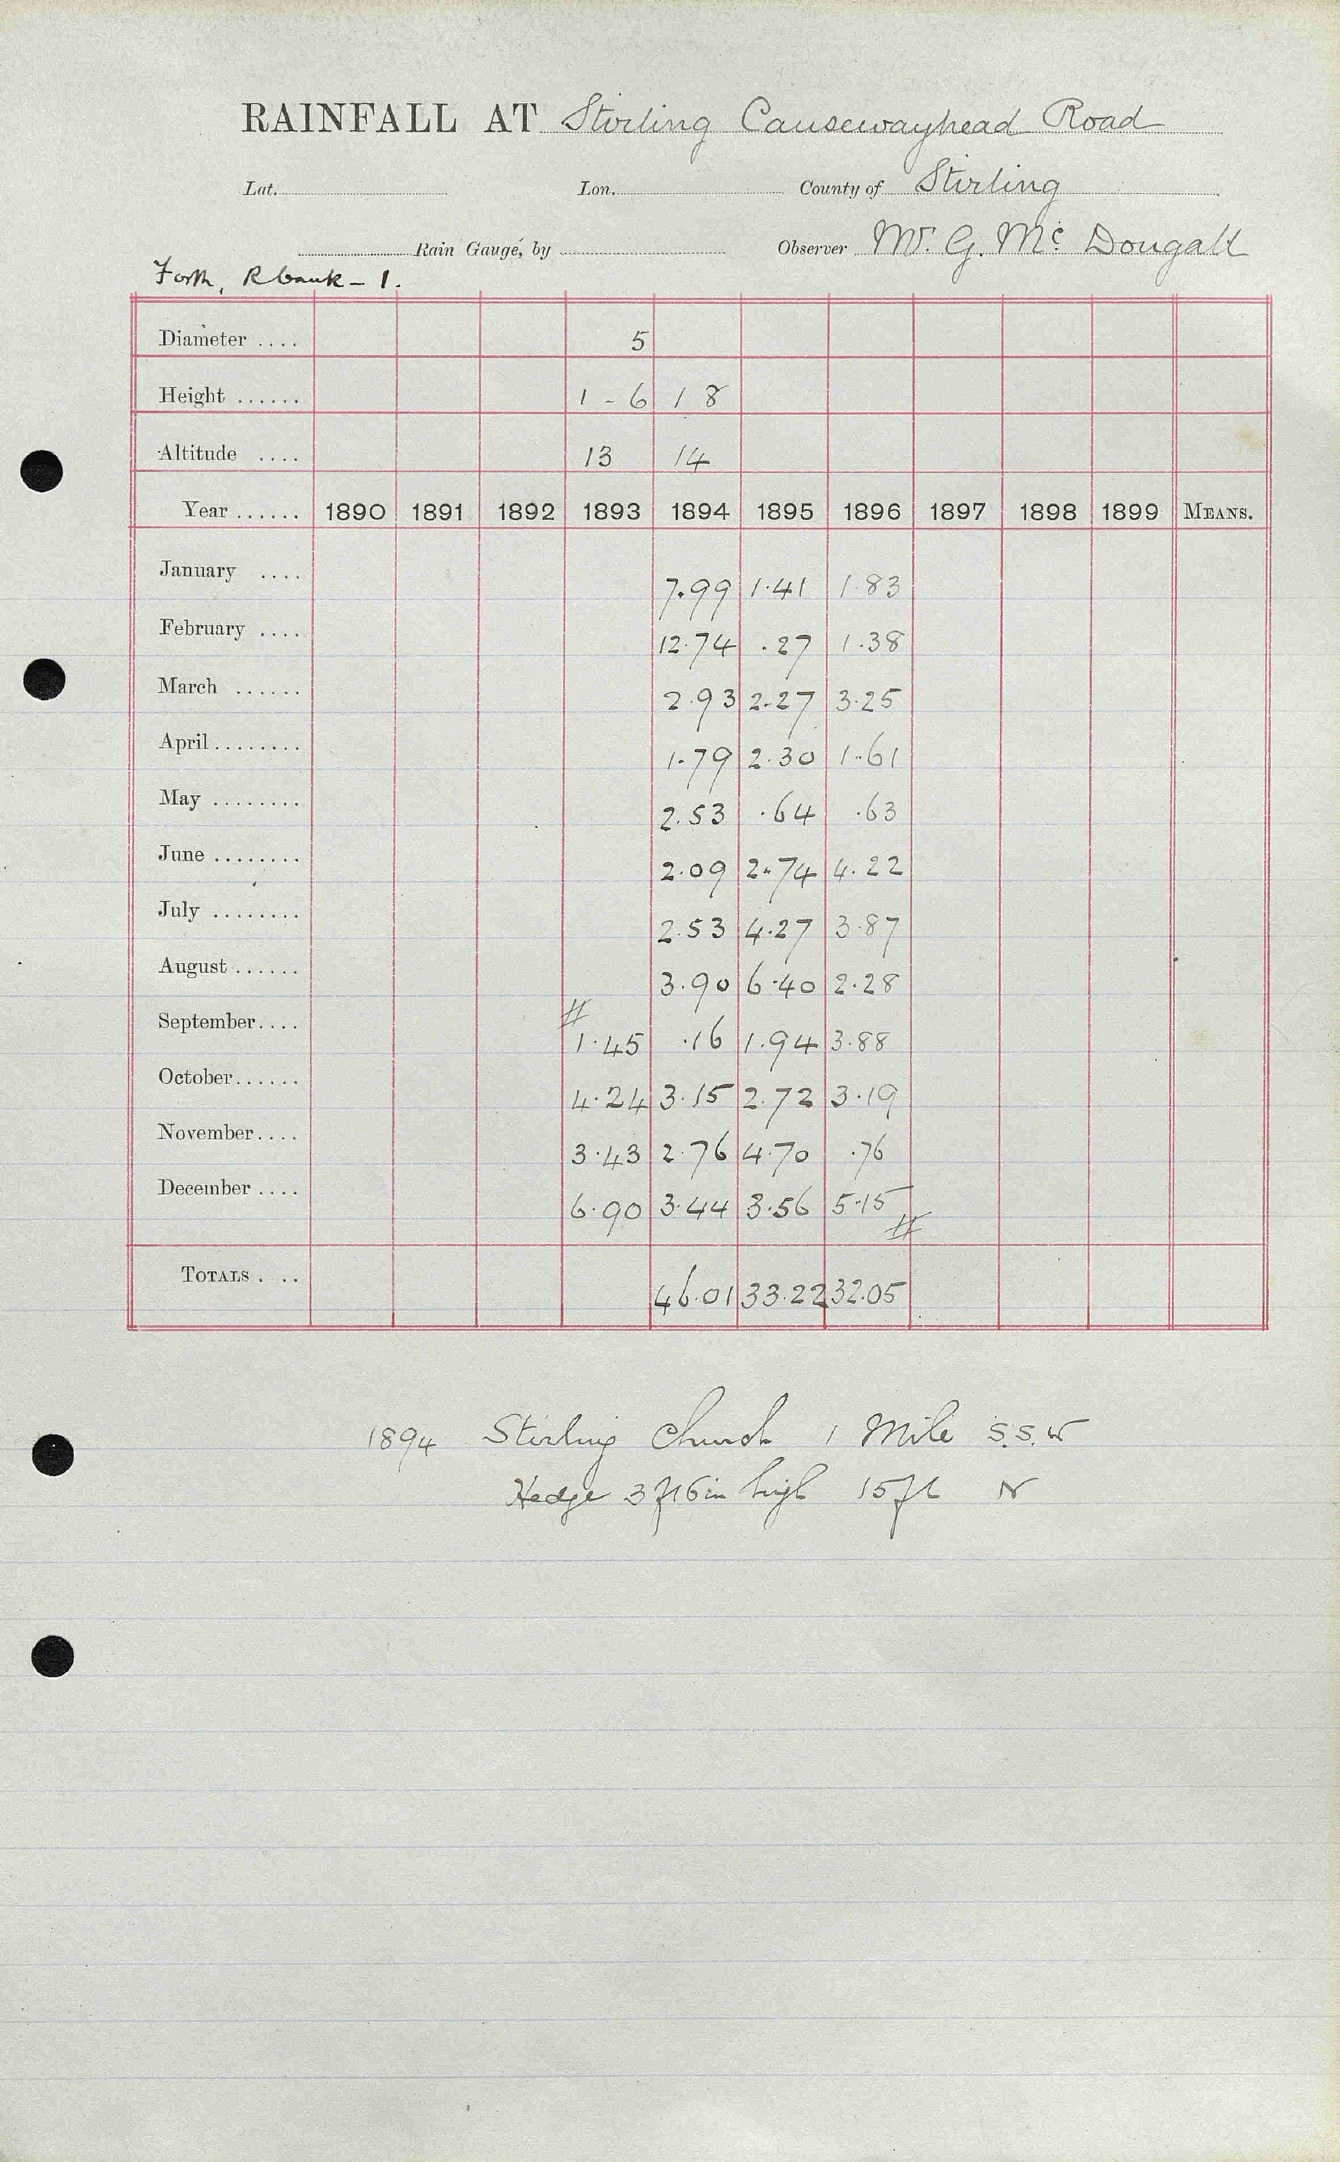 RAINFALL AT Stirling Causewayhead Road
Lat. Lon. County of Stirling
Rain Gauge, by Observer Mr. G. Mc Dougall
Forth, R bank - 1.
Diameter .... 5
Height ...... 1 - 6 1 8
Altitude .... 13 14
Year ...... 1890 1891 1892 1893 1894 1895 1896 1897 1898 1899 MEANS.
January .... 7.99 1.41 1.83
February .... 12.74 .27 1.38
March ...... 2.93 2.27 3.25
April ........ 1.79 2.30 1.61
May ........ 2.53 .64 .63
June ........ 2.09 2.74 4.22
July ........ 2.53 4.27 3.87
August ...... 3.90 6.40 2.28
September .... # 1.45 .16 1.94 3.88
October ...... 4.24 3.15 2.72 3.19
November .... 3.43 2.76 4.70 .76
December .... 6.90 3.44 3.56 5.15 #
TOTALS . .. 46.01 33.22 32.05
1894 Stirling Church 1 Mile S.S.W
Hedge 3 ft 6 in high 15 ft N